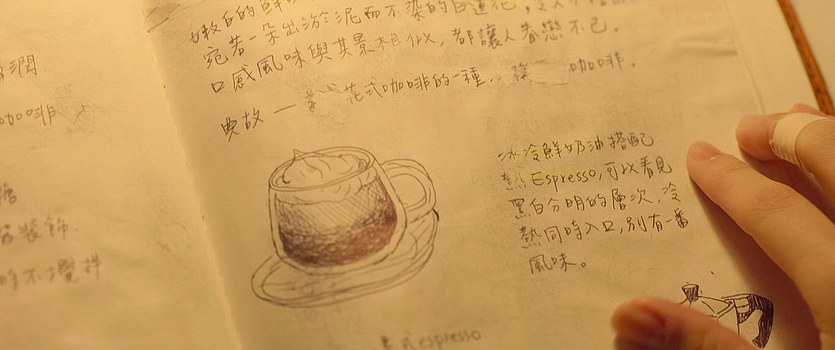 嫩白的鮮奶
宛若一朵出淤泥而不染的白蓮花,
口感風味與其景相似,都讓人眷戀不已。
典故一 花式咖啡的一種。 咖啡。
冰冷鮮奶油搭配
熱Espresso,可以看見
黑白分明的層次,冷
熱同時入口,別有一番
風味。
式espresso
潤
咖啡
裝飾
時不攪拌